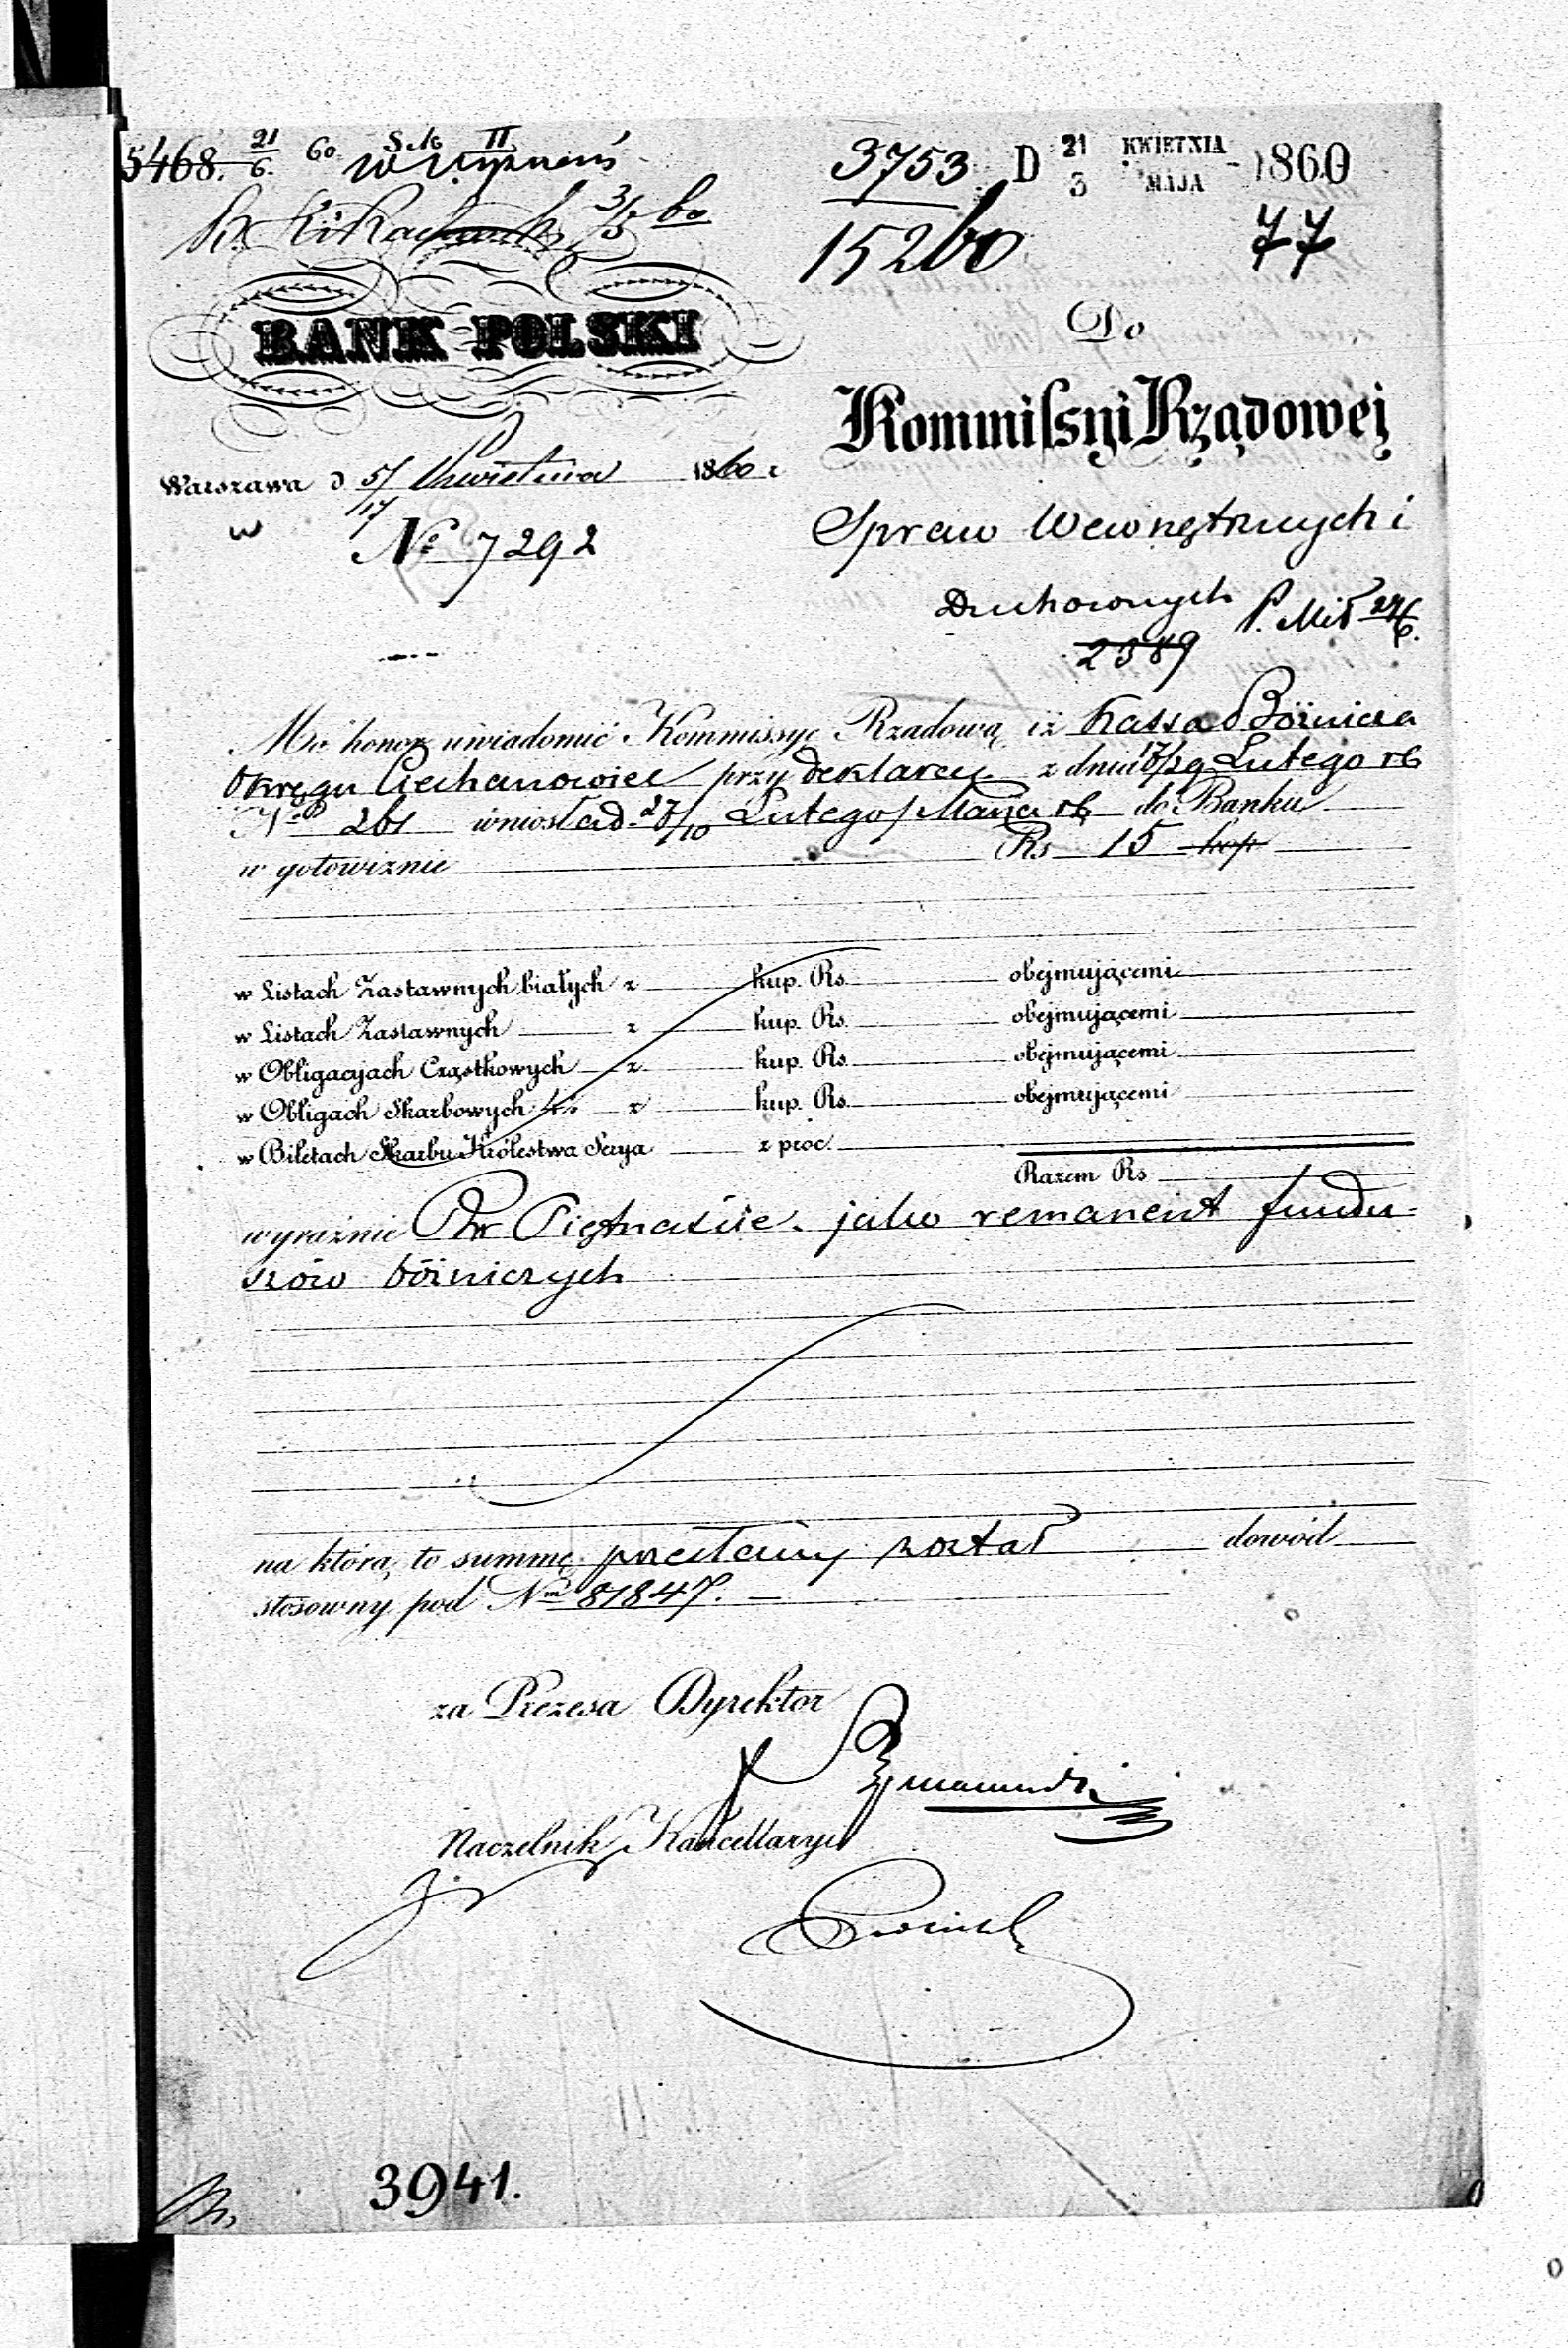 5468. 21/6. 60 Sek II
Wyznań
3/5 60
3753 D 21/3 KWIETNIA/MAJA 1860
15260 77
BANK POLSKI
Do
Kommissyi Rządowej
Warszawa d 5/17 Kwietnia 1860 r
w № 7292
Spraw Wewnętrznych i
Duchownych
2389
Ma honor uwiadomić Kommissyę Rządową iż Kassa Bóżnicza
Okręgu Ciechanowiec przy deklaracyi z dnia 17/29 Lutego rb
№ 261 wniosła d. 27/10 Lutego/Marca rb do Banku
w gotowiznie Rs 15 kop
w Listach Zastawnych białych z kup. Rs. obejmującemi
w Listach Zastawnych z kup. Rs. obejmującemi
w Obligacyjach Cząstkowych z kup. Rs. obejmującemi
w Obligach Skarbowych 4% z kup. Rs. obejmującemi
w Biletach Skarbu Królestwa Serya z proc.
Razem Rs
wyraźnie Rsr Piętnaście. jako remanent fundu-
szów bóżniczych
na którą to summę przesłany został dowód
stosowny pod Nm 81847.
za Prezesa Dyrektor
Naczelnik Kancellaryi
3941.